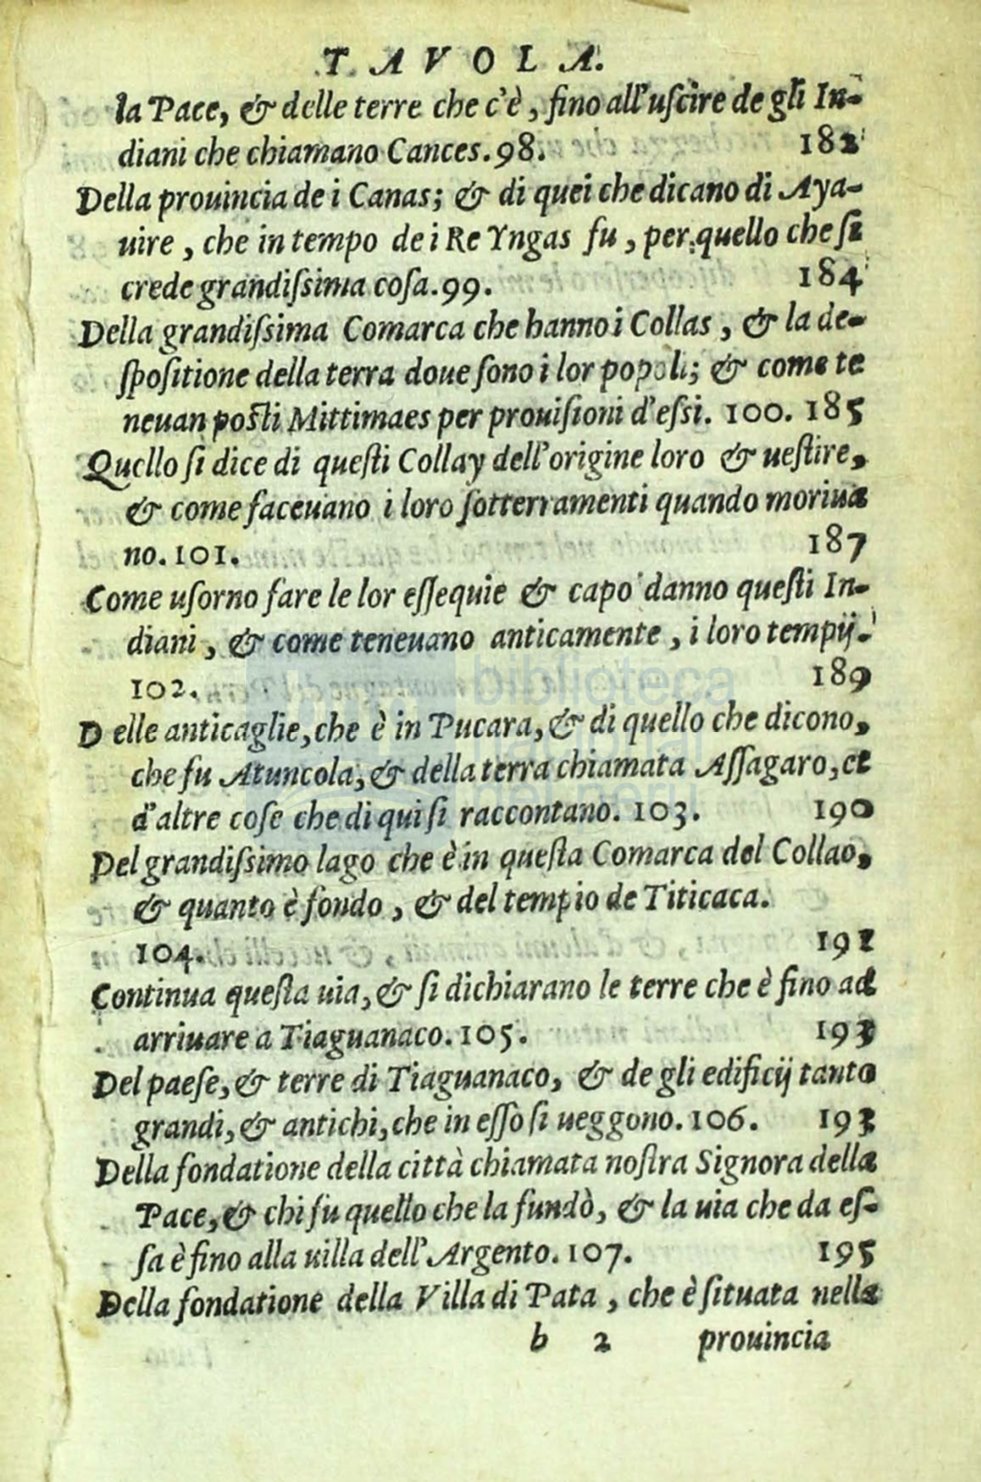 TAVOLA.
la Pace, & delle terre che c'è, fino all'uſcire de gli In-
diani che chiamano Cances. 98. 182
Della prouincia de i Canas; & di quei che dicano di Aya-
uire, che in tempo de i Re Yngas fu, per quello che ſi
crede grandiſsima coſa. 99. 184
Della grandiſsima Comarca che hanno i Collas, & la de-
ſpoſitione della terra doue ſono i lor popoli; & come te
neuan poſti Mittimaes per prouiſioni d'eſsi. 100. 185
Quello ſi dice di queſti Collay dell'origine loro & ueſtire,
& come faceuano i loro ſotterramenti quando moriua
no. 101. 187
Come uſorno fare le lor eſſequie & capo danno queſti In-
diani, & come teneuano anticamente, i loro tempij.
102. 189
Delle anticaglie, che è in Pucara, & di quello che dicono,
che fu Atuncola, & della terra chiamata Aſſagaro, et
d'altre coſe che di qui ſi raccontano. 103. 190
Del grandiſsimo lago che è in queſta Comarca del Collao,
& quanto è fondo, & del tempio de Titicaca.
104. 191
Continua queſta uia, & ſi dichiarano le terre che è fino ad
arriuare a Tiaguanaco. 105. 193
Del paeſe, & terre di Tiaguanaco, & de gli edificij tanto
grandi, & antichi, che in eſſo ſi ueggono. 106. 193
Della fondatione della città chiamata noſtra Signora della
Pace, & chi fu quello che la fundò, & la uia che da eſ-
ſa è fino alla uilla dell'Argento. 107. 195
Della fondatione della Villa di Pata, che è ſituata nella
b 2 prouincia
biblioteca